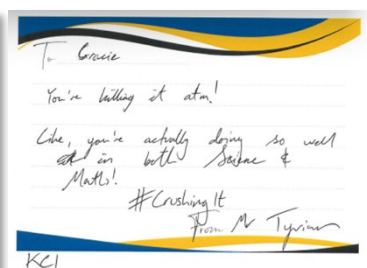 To Gracie
You're killing it atm!
Like, you're actually doing so well
in both Science &
Maths!
#CrushingIt
From Mr
KCI